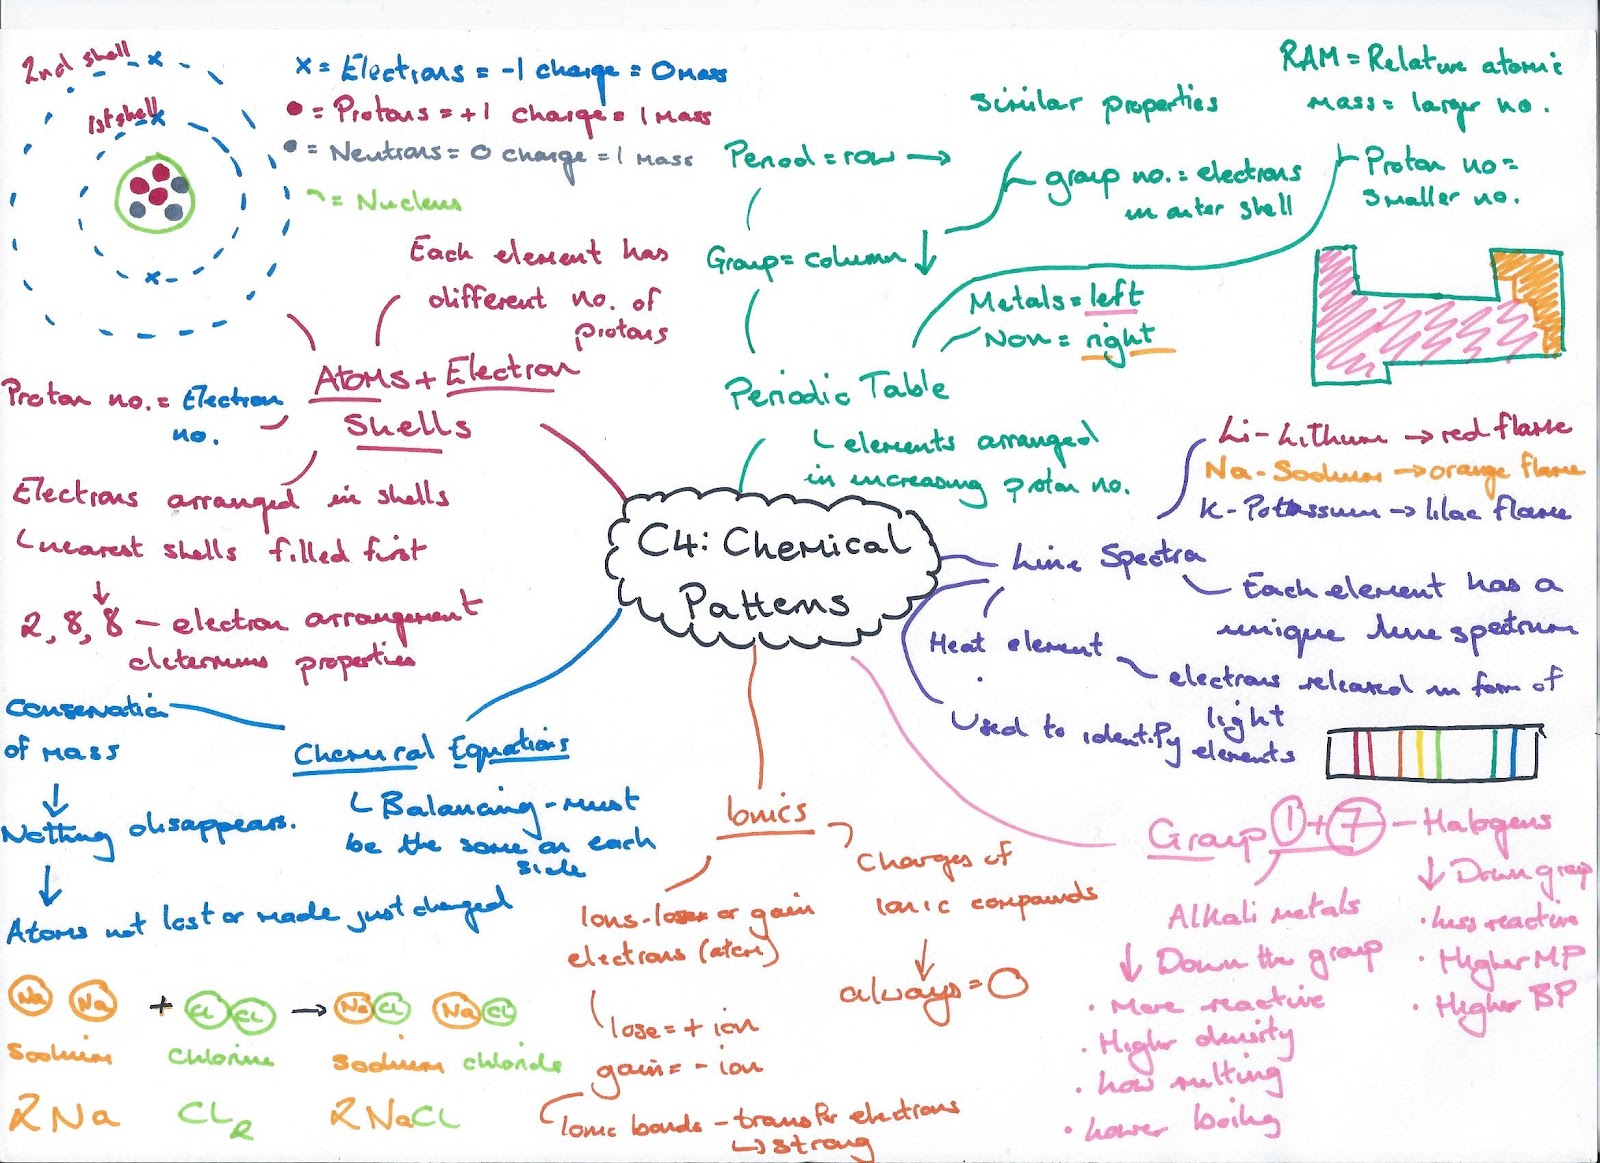 2nd shell
1st shell
x = Electrons = -1 charge = 0 mass
• = Protons = +1 charge = 1 mass
• = Neutrons = 0 charge = 1 mass
= Nucleus
Each element has
different no. of
protons
Atoms + Electron
Shells
Proton no. = Electron
no.
Electrons arranged in shells
nearest shells filled first
↓
2, 8, 8 – electron arrangement
determines properties
Period = row →
Group = column ↓
similar properties
group no. = electrons
in outer shell
RAM = Relative atomic
mass = larger no.
Proton no =
smaller no.
Metals = left
Non = right
Periodic Table
elements arranged
in increasing proton no.
C4: Chemical
Patterns
Li - Lithium → red flame
Na - Sodium → orange flame
K - Potassium → lilac flame
Line Spectra
Each element has a
unique line spectrum
Heat element
electrons released in form of
light
Used to identify
elements
Chemical Equations
Conservation
of mass
↓
Nothing disappears.
↓
Atoms not lost or made just changed
Balancing - must
be the same on each
side
Na Na + Cl Cl → Na Cl Na Cl
Sodium chlorine sodium chloride
2Na CL2 2NaCL
Ionics
Ions - lose or gain
electrons (atom)
lose = + ion
gain = - ion
Ionic bonds - transfer electrons
↳ strong
Charges of
ionic compounds
↓
always = 0
Group 1 + 7 – Halogens
Alkali metals
↓ Down the group
• More reactive
• Higher density
• Low melting
• Lower boiling
↓ Down group
• Less reactive
• Higher MP
• Higher BP